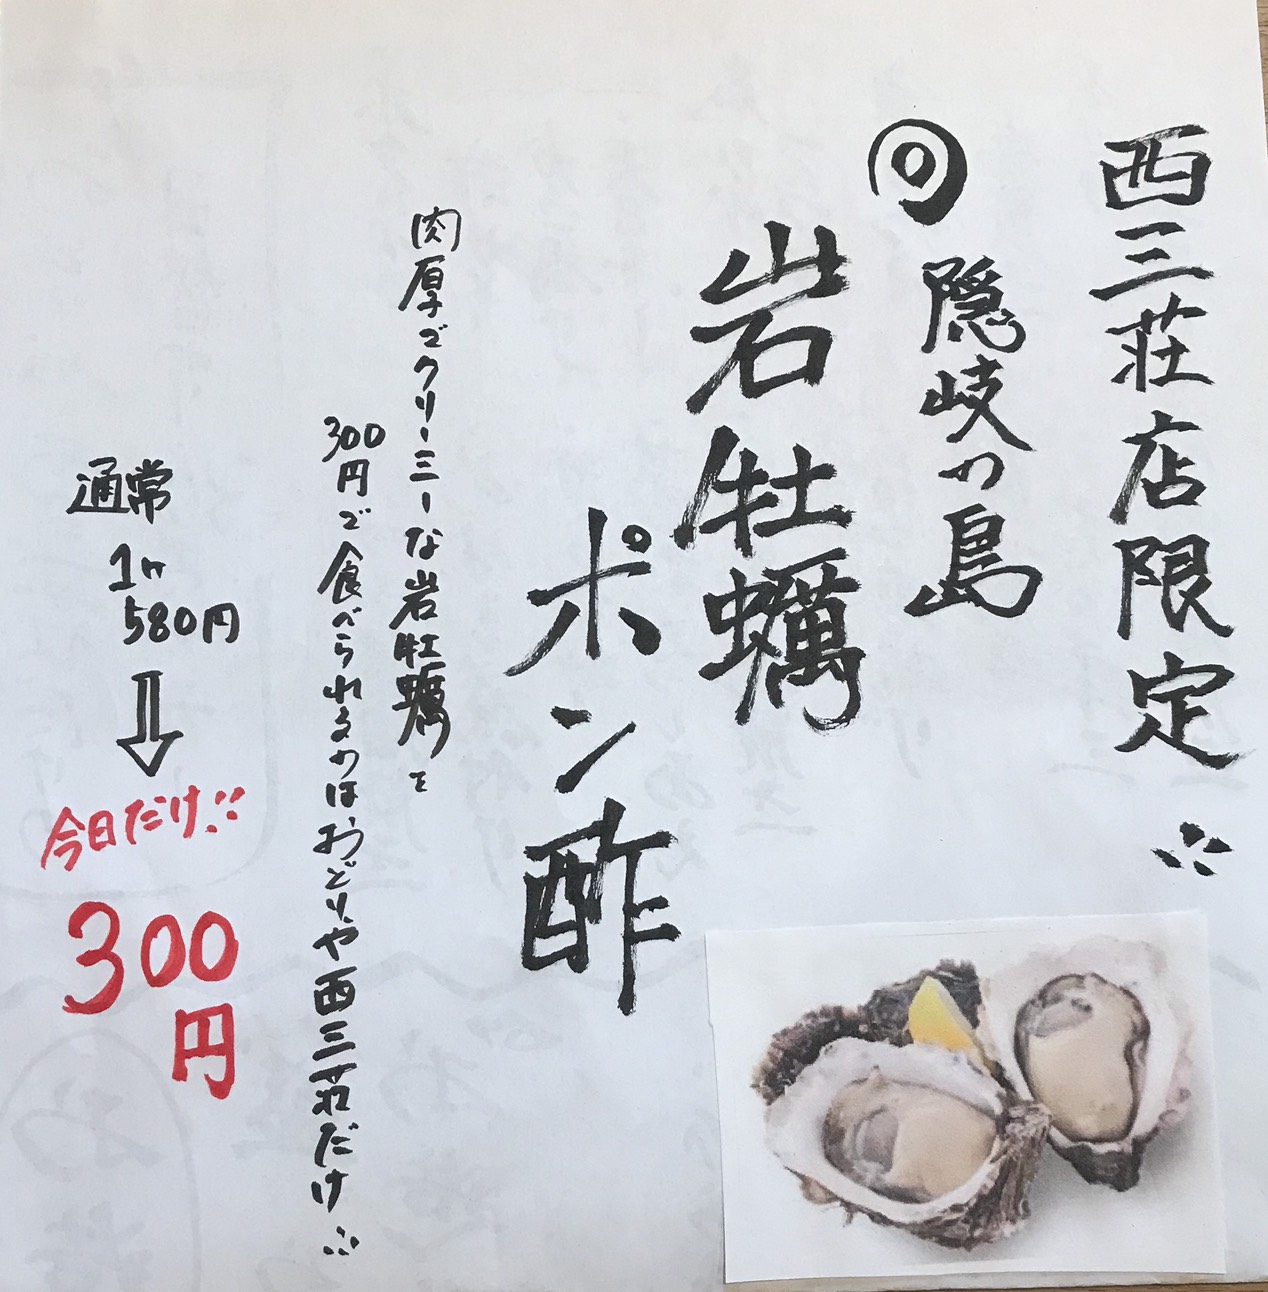 西三荘店限定!!
隠岐の島
岩牡蠣
ポン酢
肉厚でクリーミーな岩牡蠣を
300円で食べられるのはおどりや西三荘だけ!!
通常
1ヶ
580円
今日だけ!!
300
円